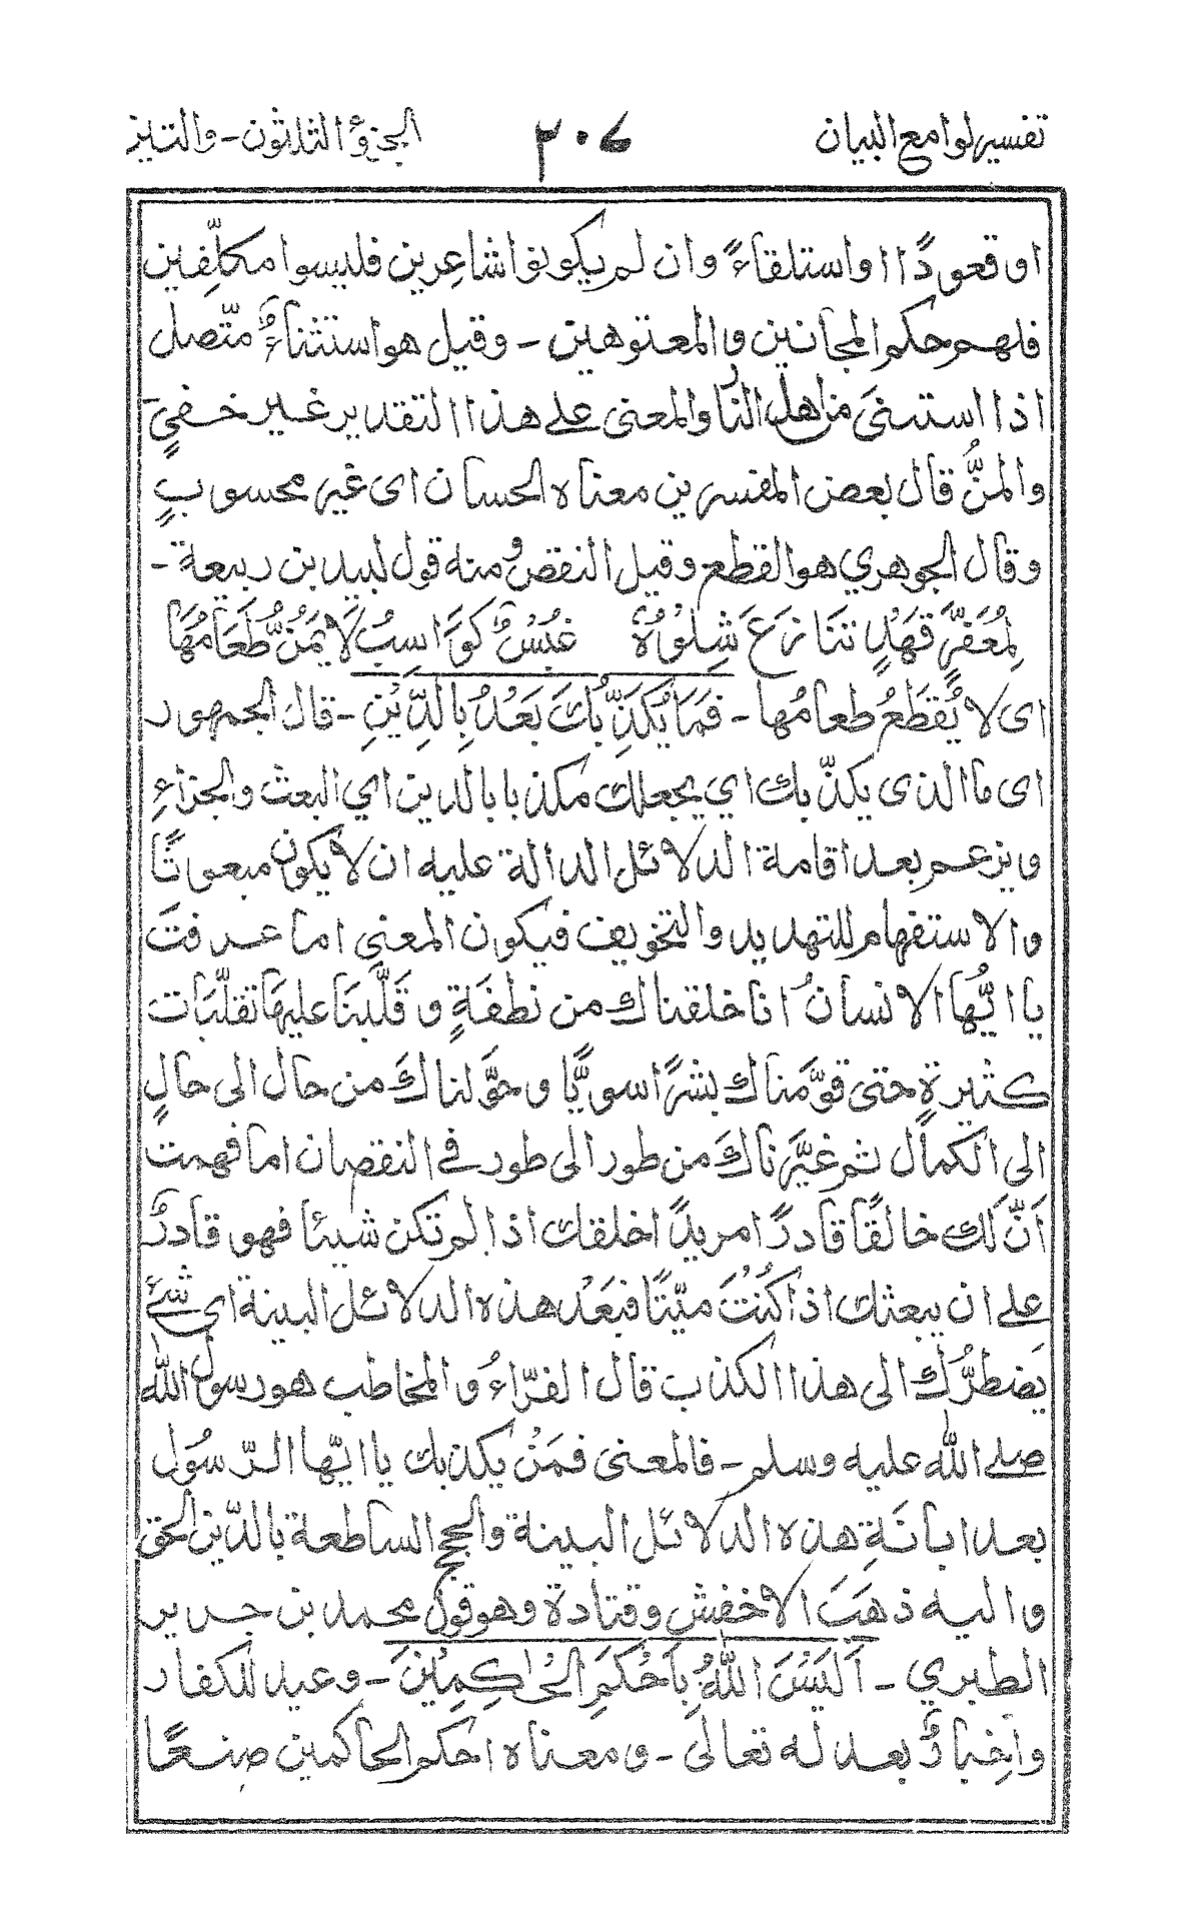 تفسير لوامع البيان ٢٠٧ الجزؤ الثلاثون - والتين
او قعودًا او استلقاءً وان لم يكونوا شاعرين فليسوا مكلّفين
فلهم حكم المجانين والمعتوهين - وقيل هو استثناءٌ متّصل
اذا استثنىٰ من اهل النار والمعنى علے هذا التقدير غير خفيٍ
والمنُّ قال بعض المفسرين معناه الحسان اى غير محسوبٍ
وقال الجوهري هو القطع وقيل النقص ومنه قول لبيد بن ربيعة -
لِمُعَفَّرٍ قَهَدٍ تَنَازَعَ شِلْوُهٗ غُبْسٌ كَوَاسِبُ لَا يُمَنُّ طَعَامُهَا
اى لا يُقطَعُ طعامُها - فَمَا يُكَذِّبُكَ بَعْدُ بِالدِّيْنِ - قال الجمهور
اى ما الذى يكذّبك اي يجعلك مكذبا بالدين اي البعث والجزاءِ
ويزعم بعد اقامة الدلائل الدالة عليه ان لا يكون مبعوثًا
والاستفهام للتهديد والتخويف فيكون المعنى اما عرفتَ
يا ايُّها الانسانُ انا خلقناك من نطفةٍ وقلَّبنَا عليها تقلّبَات
كثيرةٍ حتى قوَّمناك بشرًا سويًّا وحوَّلناكَ من حال الى حالٍ
الى الكمال ثم غيَّرناكَ من طور الى طور فے النقصان اما فهمت
اَنَّ لَك خالقًا قادرًا مريدًا خلقك اذا لم تكن شيئا فهو قادرٌ
علے ان يبعثك اذا كُنْتَ ميّتًا فبَعْدُ هذه الدلائل البينة اى شئے
يَضطرُّك الى هذا الكذب قال الفرّاءُ والمخاطب هو رسول الله
صلے الله عليه وسلم - فالمعنى فمَنْ يكذبك يا ايّها الرّسُول
بعد ابانَةِ هذه الدلائل البينة والحجج الساطعة بالدّين الحق
واليه ذهَبَ الاخفش وقتادة وهو قول محمد بن جرير
الطبري - اَلَيْسَ اللهُ بِاَحْكَمِ الْحٰكِمِيْنَ - وعيد للكفار
واخبارٌ بعدله تعالىٰ - ومعناه احكم الحاكمين صنعًا